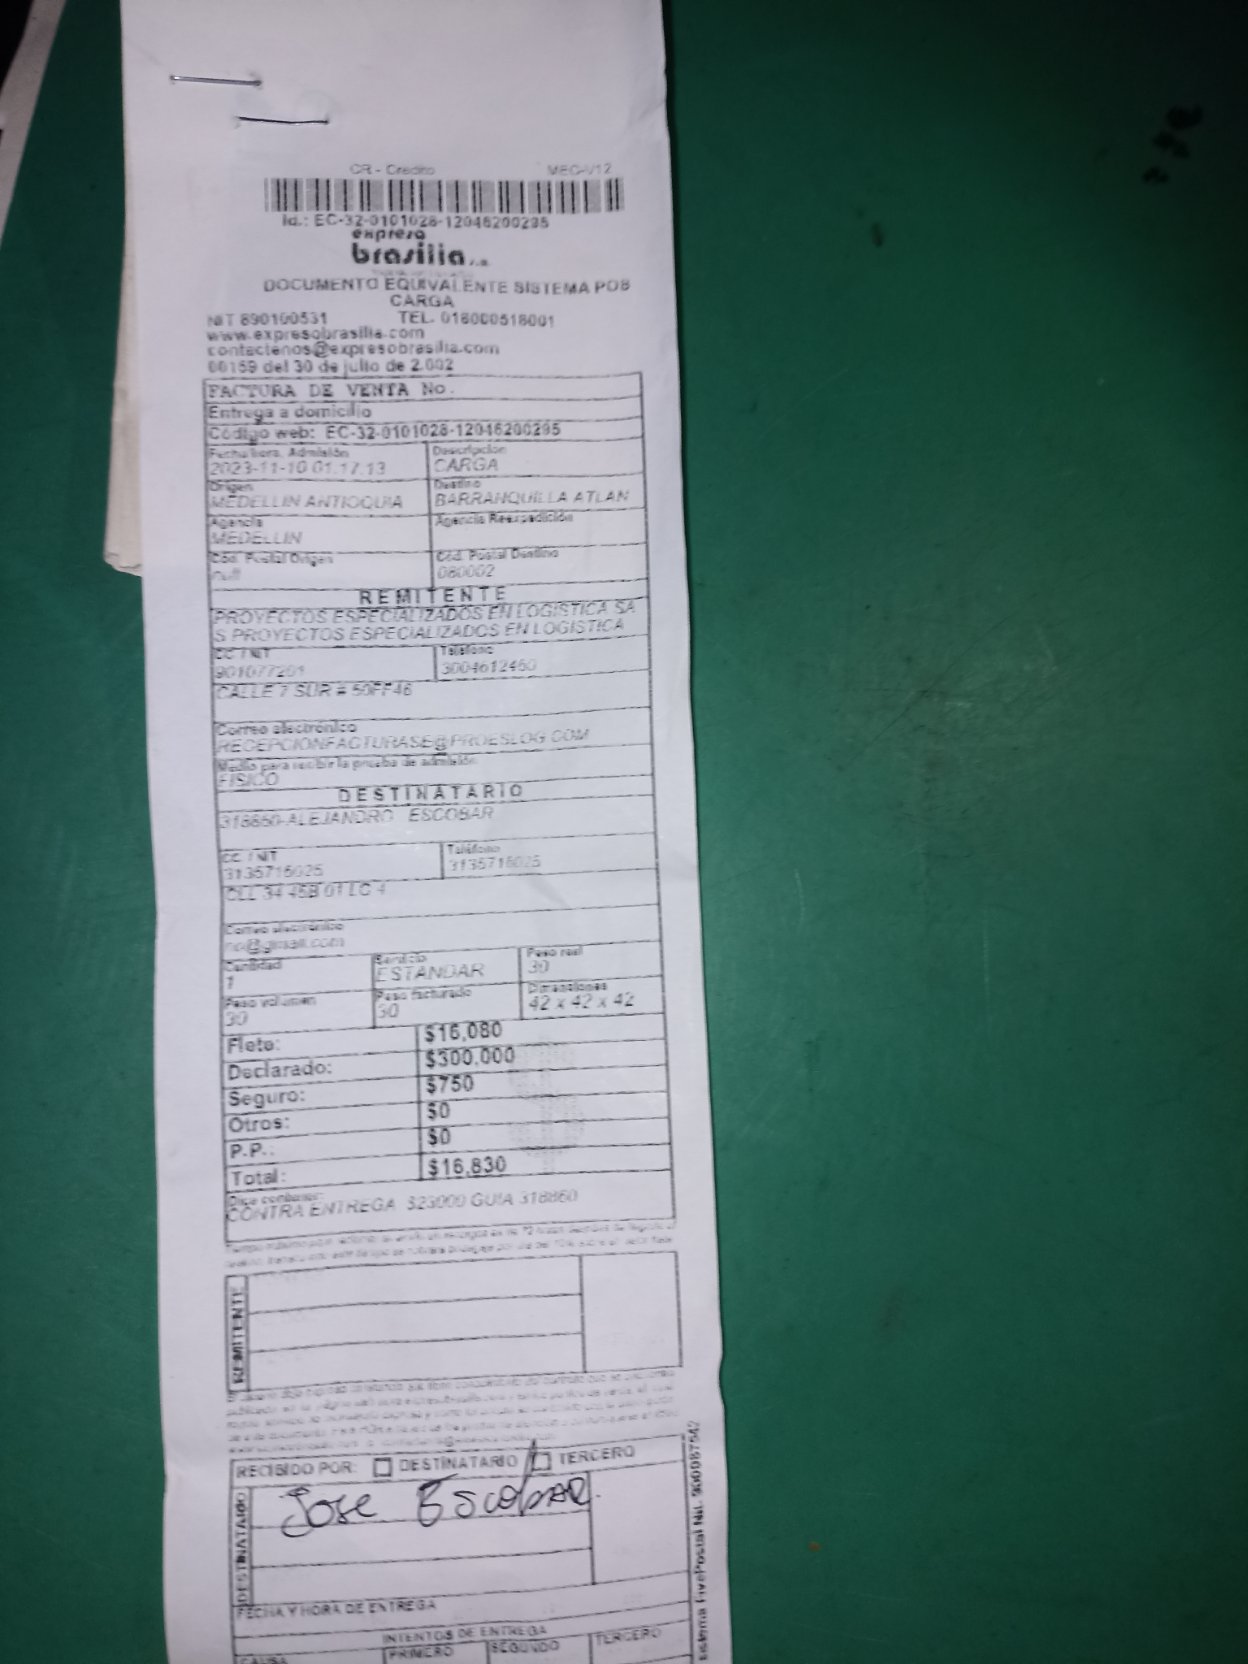 CR - Credito MEC-V12
Id.: EC-32-0101028-12046200295
expreso
brasilia s.a.
DOCUMENTO EQUIVALENTE SISTEMA POS
CARGA
NIT 890100531 TEL. 018000518001
www.expresobrasilia.com
contactenos@expresobrasilia.com
00159 del 30 de julio de 2.002
FACTURA DE VENTA No.
Entrega a domicilio
Código web: EC-32-0101028-12046200295
Fecha hora. Admisión Descripción
2023-11-10 01:17:13 CARGA
Origen Destino
MEDELLIN ANTIOQUIA BARRANQUILLA ATLAN
Agencia Agencia Reexpedición
MEDELLIN
Cód. Postal Origen Cód. Postal Destino
null 080002
REMITENTE
PROYECTOS ESPECIALIZADOS EN LOGISTICA SA
S PROYECTOS ESPECIALIZADOS EN LOGISTICA
CC / NIT Teléfono
901077201 3004612460
CALLE 7 SUR # 50FF48
Correo electrónico
RECEPCIONFACTURASE@PROESLOG.COM
Medio para recibir la prueba de admisión
FISICO
DESTINATARIO
318860-ALEJANDRO ESCOBAR
CC / NIT Teléfono
3135716025 3135716025
CLL 34 45B 01 LC 4
Correo electrónico
no@gmail.com
Cantidad Servicio Peso real
1 ESTANDAR 30
Peso volumen Peso facturado Dimensiones
30 30 42 x 42 x 42
Flete: $16,080
Declarado: $300,000
Seguro: $750
Otros: $0
P.P.: $0
Total: $16,830
Dice contener:
CONTRA ENTREGA $23000 GUIA 318860
REMITENTE
RECIBIDO POR: DESTINATARIO TERCERO
DESTINATARIO
Jose Escobar.
FECHA Y HORA DE ENTREGA
INTENTOS DE ENTREGA
CAUSA PRIMERO SEGUNDO TERCERO
Sistema FivePostal Nit. 900087542